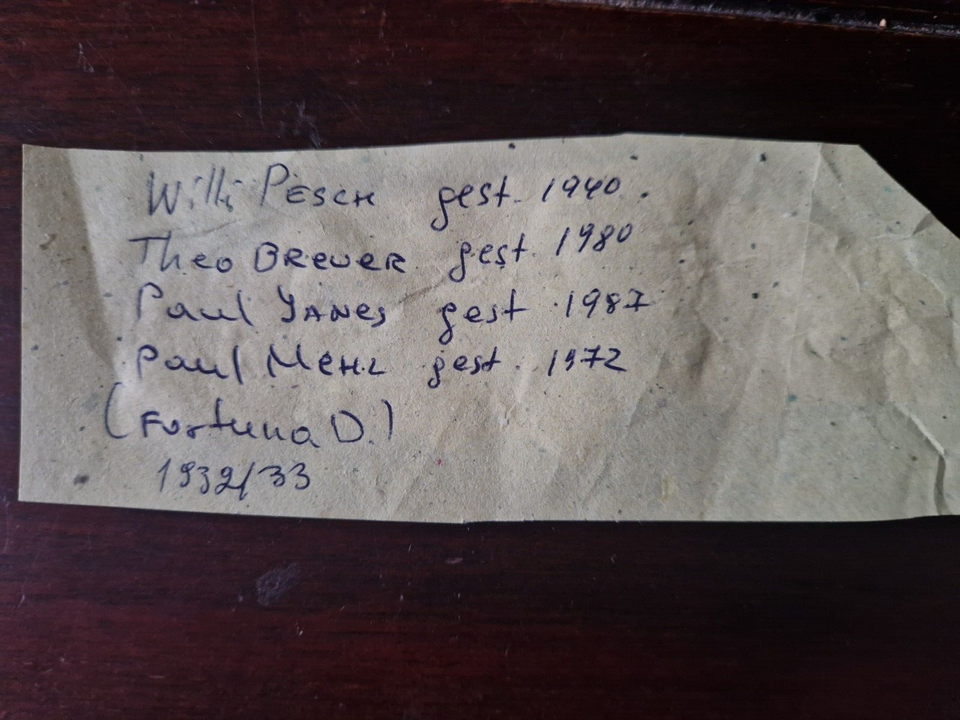 Willi PESCH gest. 1940.
Theo BREUER gest. 1980
Paul JANES gest 1987
Paul MEHL gest. 1972
(Fortuna D.)
1932/33